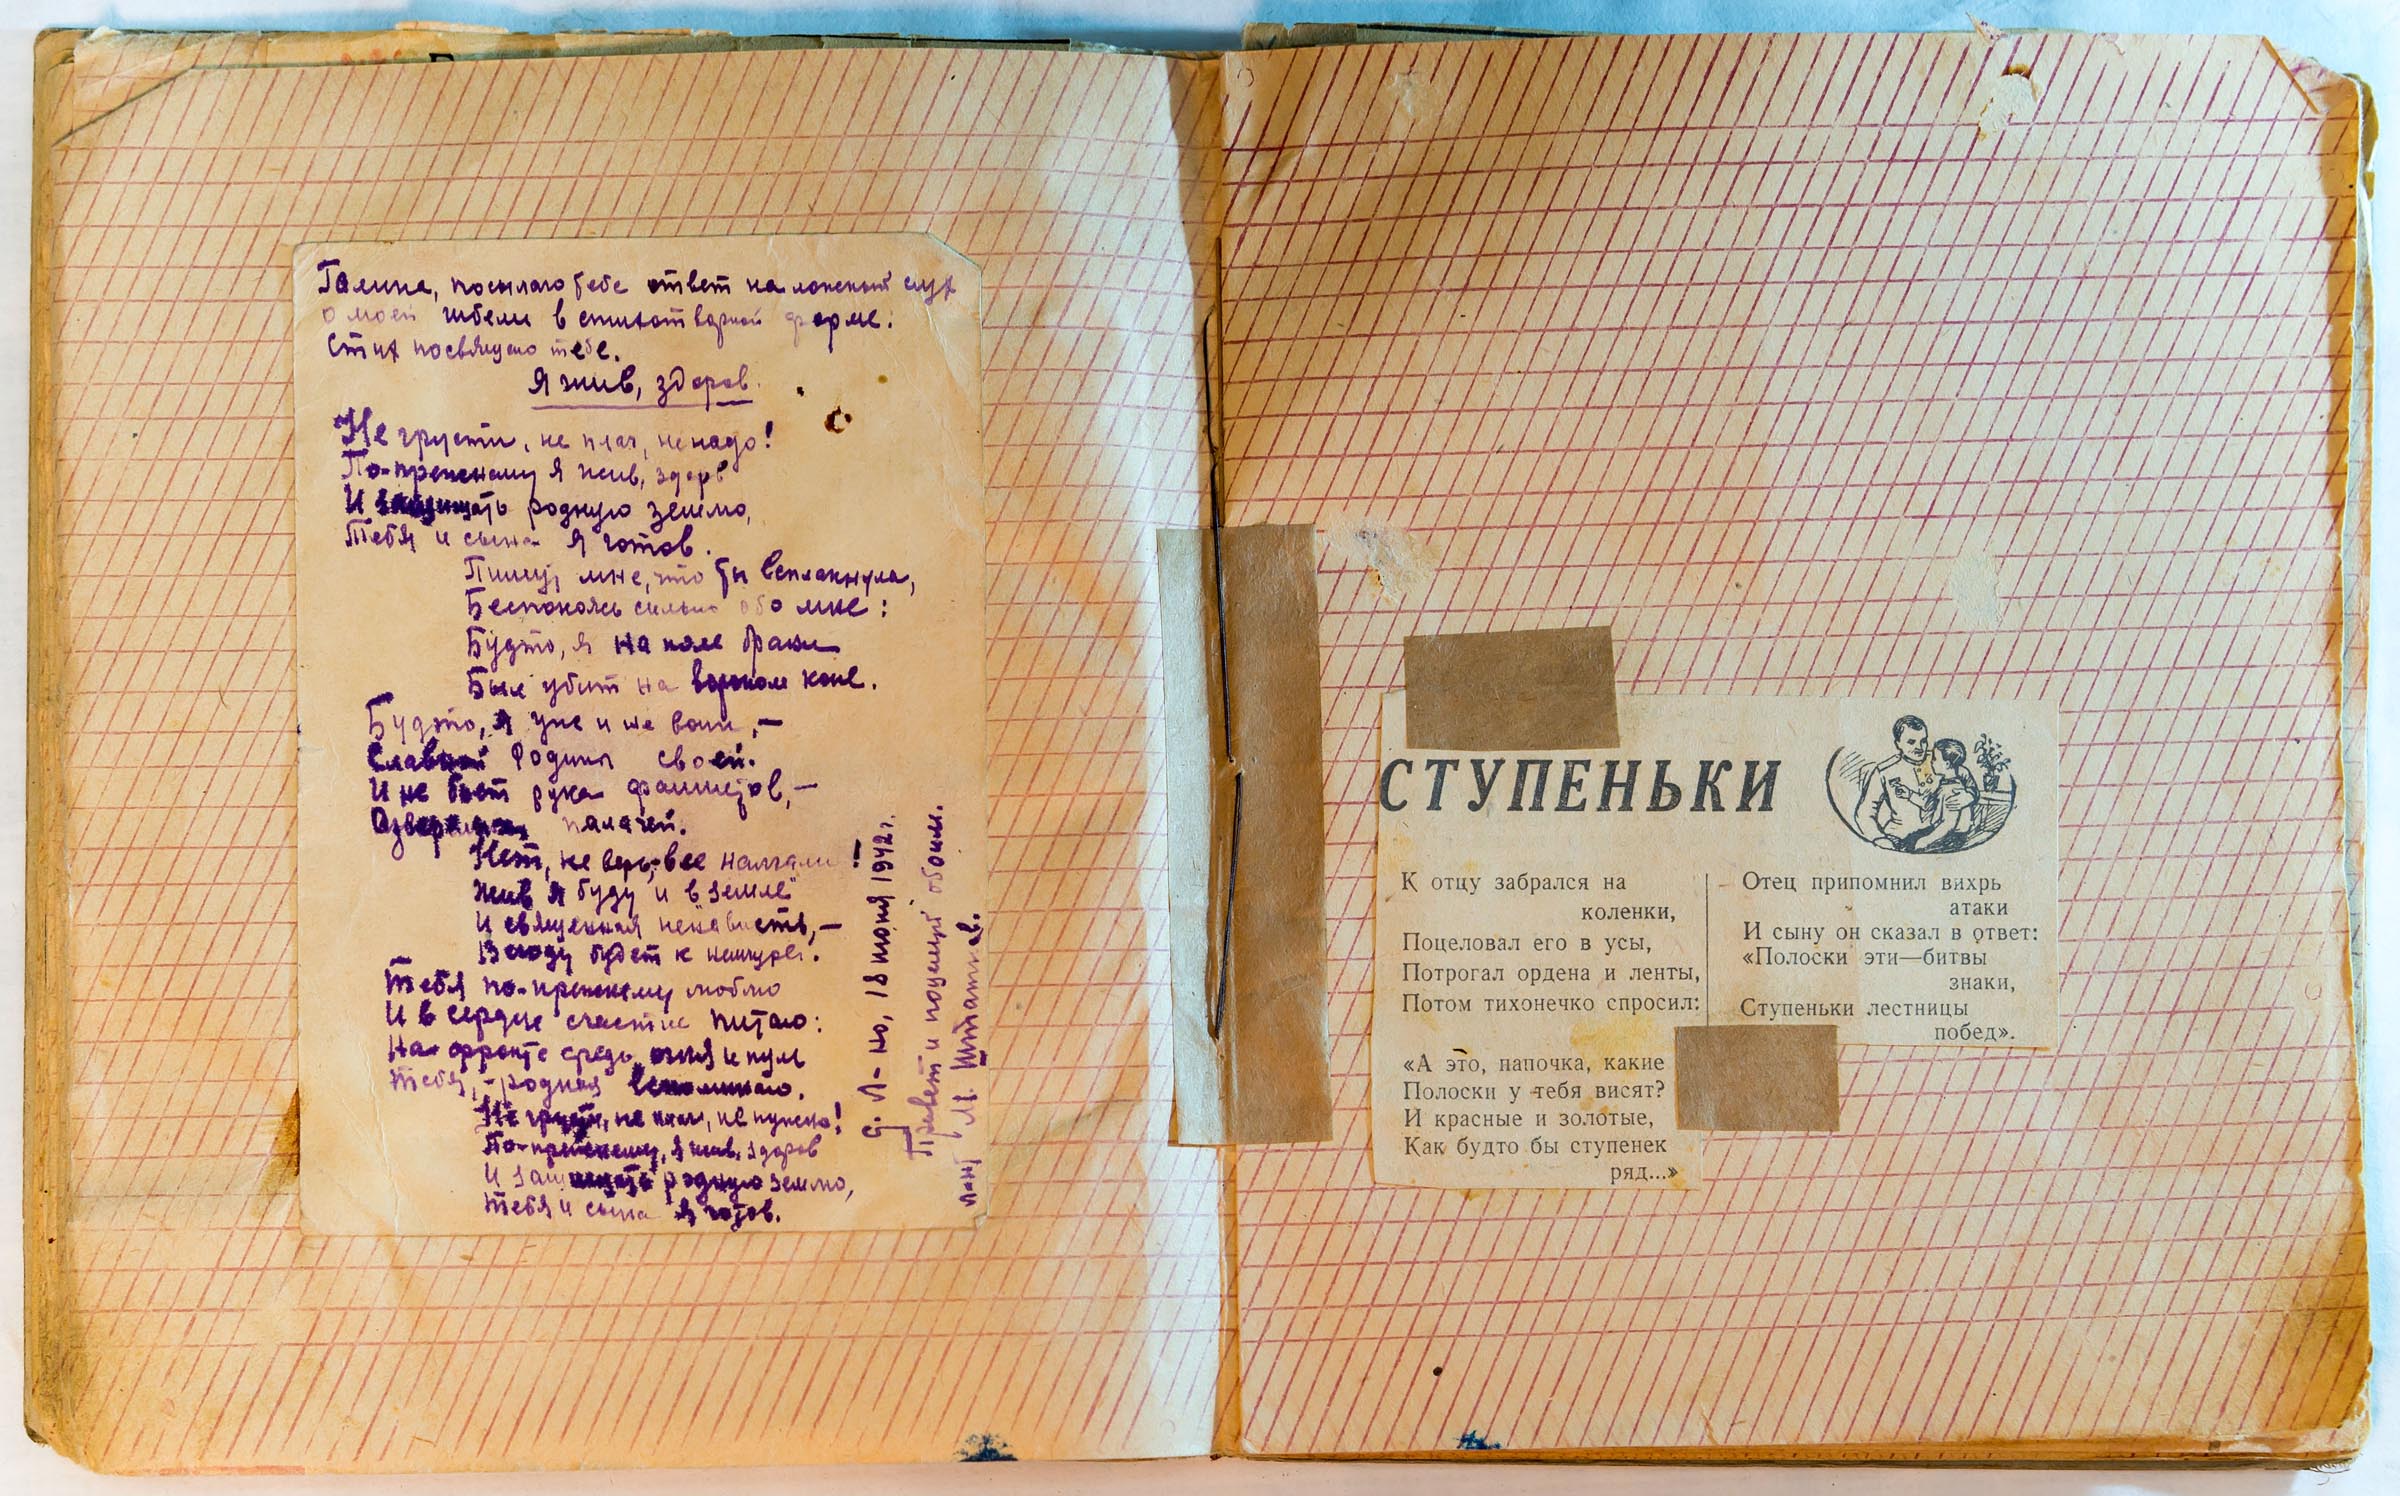 Галина, посылаю тебе ответ на ложный слух
о моей гибели в стихотворной форме.
Стих посвящено тебе.
Я жив, здоров.
Не грусти, не плач, ненадо!
По-прежнему я жив, здоров
И защищать родную землю,
Тебя и сына я готов.
Пишут мне, что ты всплакнула,
Беспокоясь сильно обо мне:
Будто, я на поле брани
Был убит на вороном коне.
Будто, я уже и не воин,—
Славной Родины своей.
И не бьет рука фашистов,—
Озверелых палачей.
Нет, не верь,-все налгали!
Жив я буду и в земле
И священная ненависть,—
Всюду будет к немчуре.
Тебя по-прежнему люблю
И в сердце счастие питаю:
На фронте средь огня и пуль
Тебя,-родная вспоминаю.
Не грусти, не плач, не нужно!
По-прежнему, я жив, здоров
И защищать родную землю,
Тебя и сына я готов.
с. Л-но, 18 июня 1942 г.
Привет и поцелуй обоим.
М.
СТУПЕНЬКИ
К отцу забрался на
коленки,
Поцеловал его в усы,
Потрогал ордена и ленты,
Потом тихонечко спросил:
«А это, папочка, какие
Полоски у тебя висят?
И красные и золотые,
Как будто бы ступенек
ряд...»
Отец припомнил вихрь
атаки
И сыну он сказал в ответ:
«Полоски эти—битвы
знаки,
Ступеньки лестницы
побед».